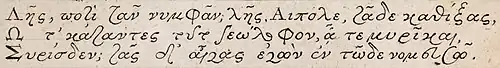 Λῆς, ποτὶ τᾶν νυμφᾶν; λῆς, Αἰπόλε, τᾶδε καθίξας,
Ω τ̀ κάταντες τῦτ γεώλοφον, ἅ τε μυρῖκαι,
Συρίσδεν; τὰς δ' αἶγας ἐγὼν ἐν τῶδε νομευσῶ.